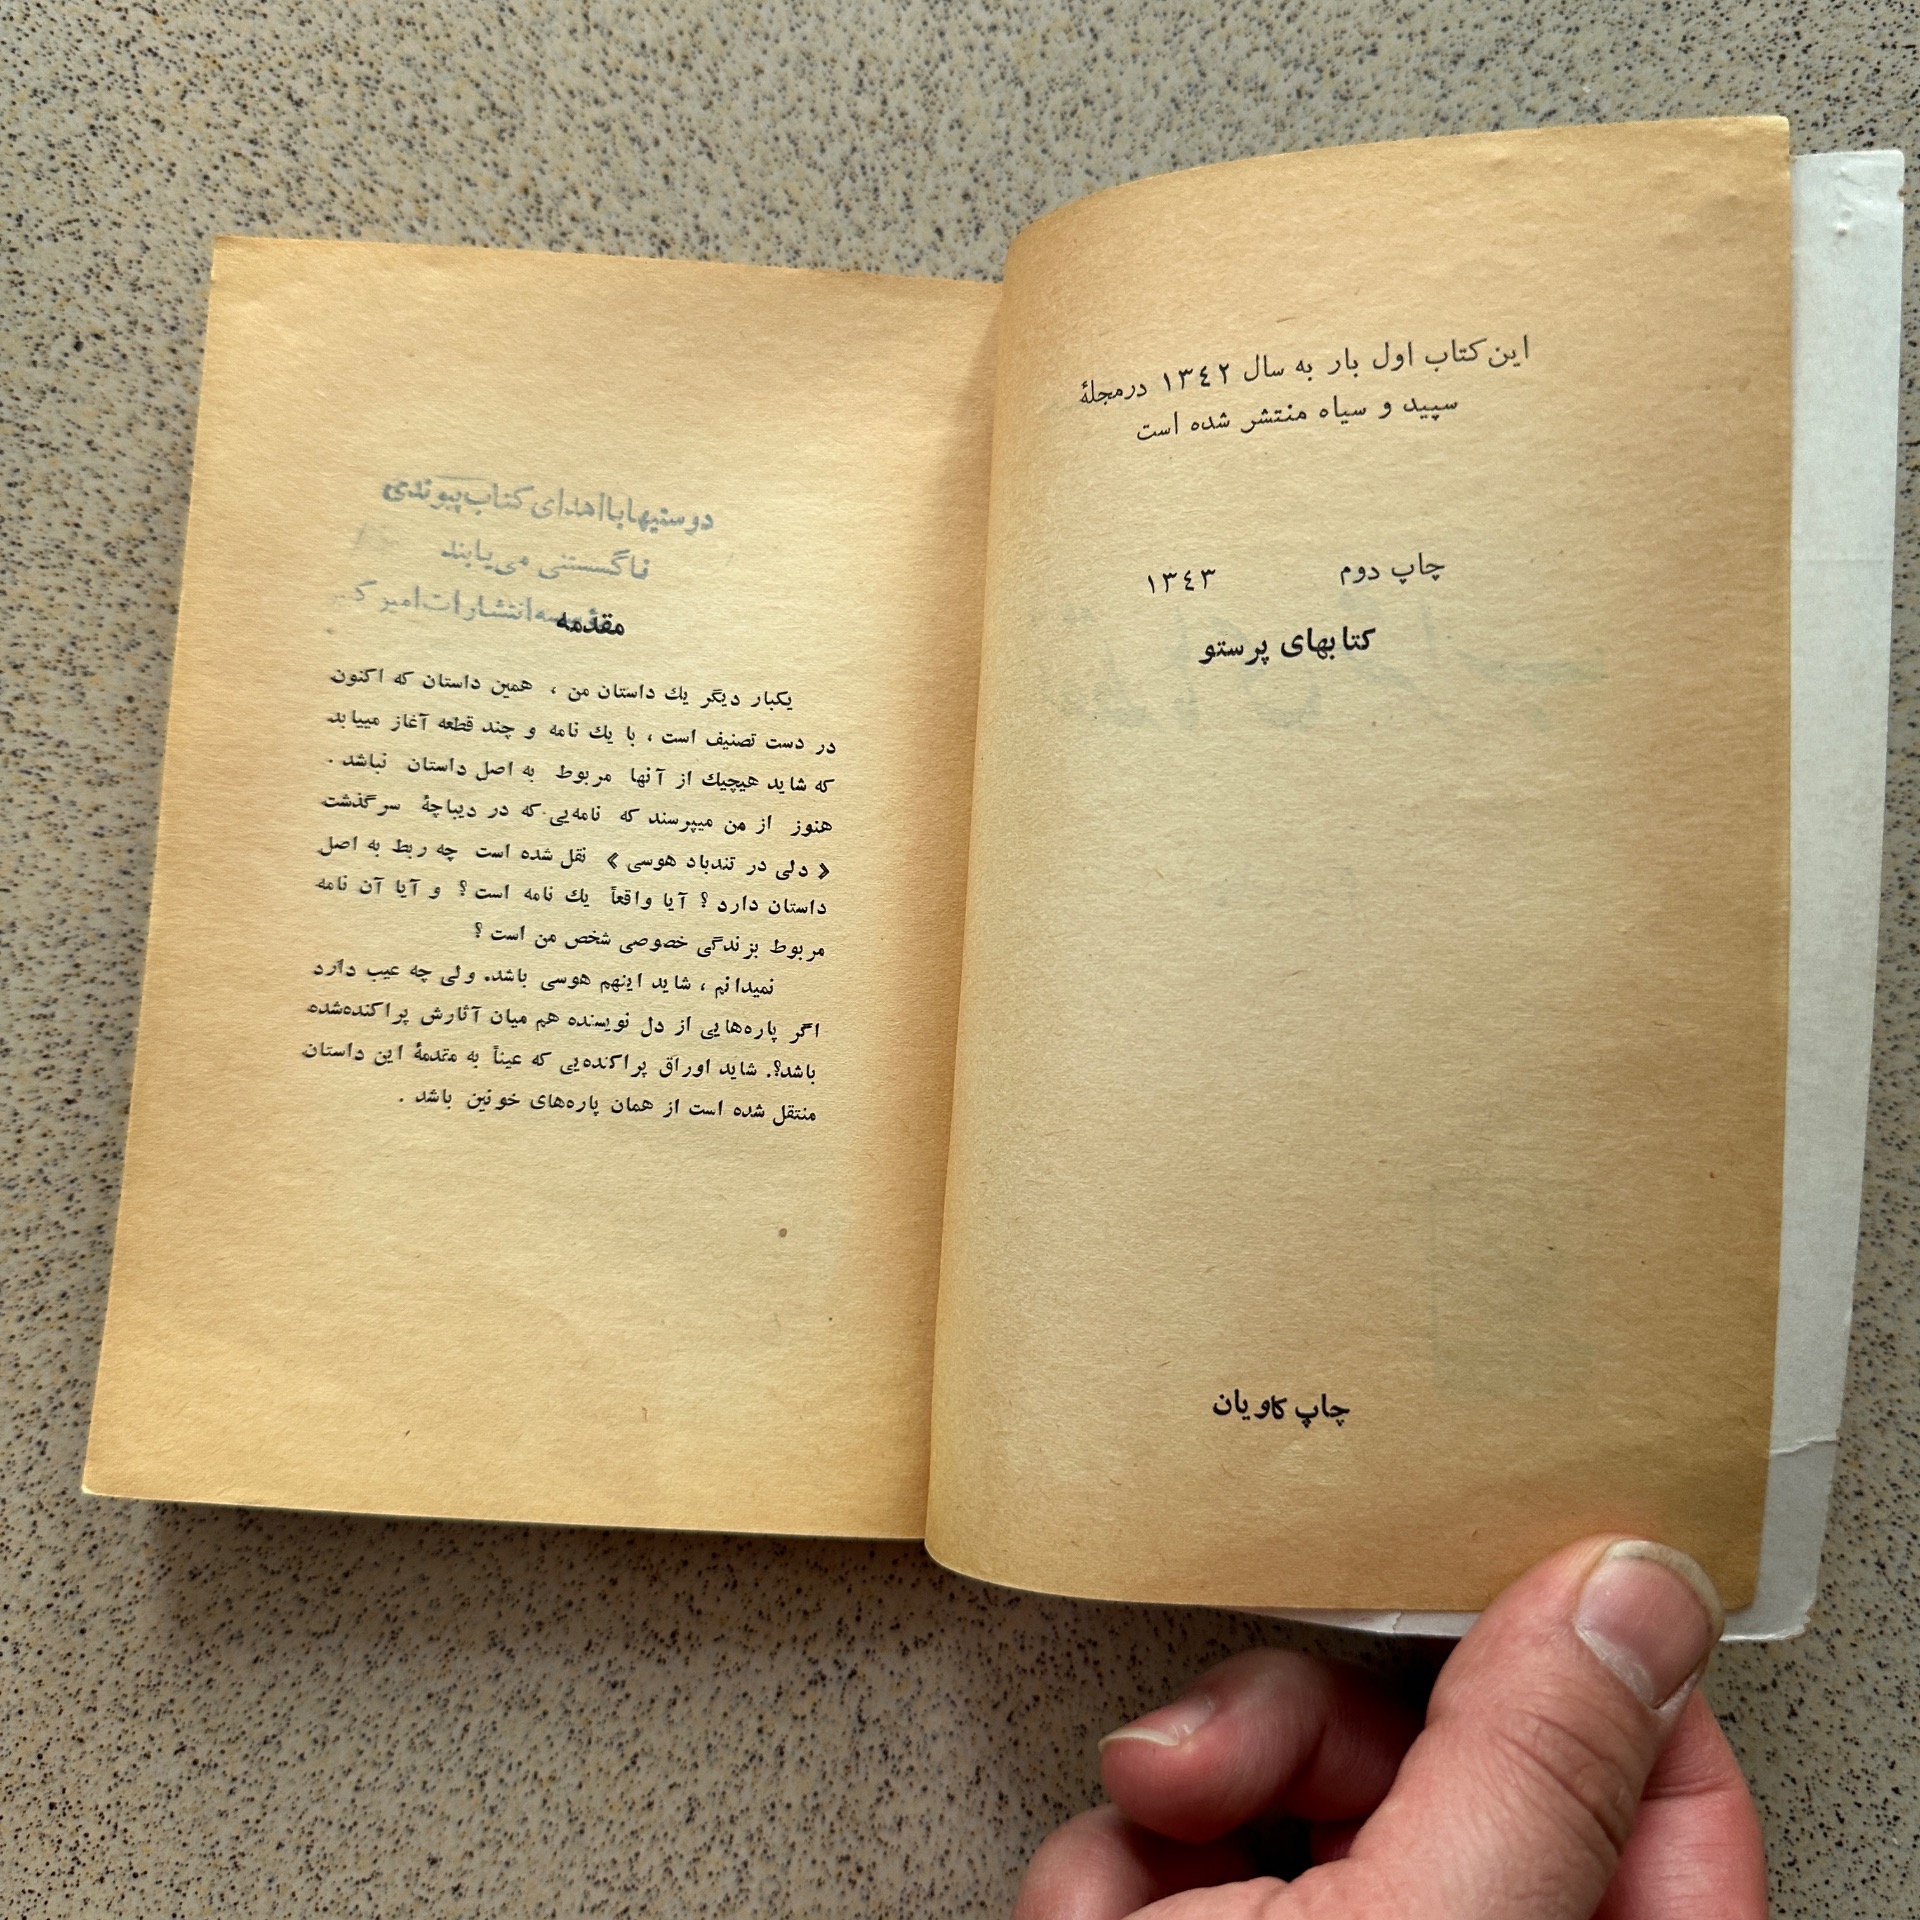 این کتاب اول بار به سال ۱۳٤۲ درمجلهٔ
سپید و سیاه منتشر شده است
چاپ دوم ۱۳٤۳
کتابهای پرستو
چاپ کاویان
دوستیها با اهدای کتاب پیوندی
ناگسستنی می‌یابند
انتشارات امیر
مقدمه
یکبار دیگر یك داستان من ، همین داستان که اکنون
در دست تصنیف است ، با یك نامه و چند قطعه آغاز مییابد
که شاید هیچیك از آنها مربوط به اصل داستان نباشد .
هنوز از من میپرسند که نامه‌یی که در دیباچهٔ سرگذشت
« دلی در تندباد هوسی » نقل شده است چه ربط به اصل
داستان دارد ؟ آیا واقعاً یك نامه است ؟ و آیا آن نامه
مربوط بزندگی خصوصی شخص من است ؟
نمیدانم ، شاید اینهم هوسی باشد. ولی چه عیب دارد
اگر پاره‌هایی از دل نویسنده هم میان آثارش پراکنده‌شده
باشد؟. شاید اوراق پراکنده‌یی که عیناً به مقدمهٔ این داستان
منتقل شده است از همان پاره‌های خونین باشد .